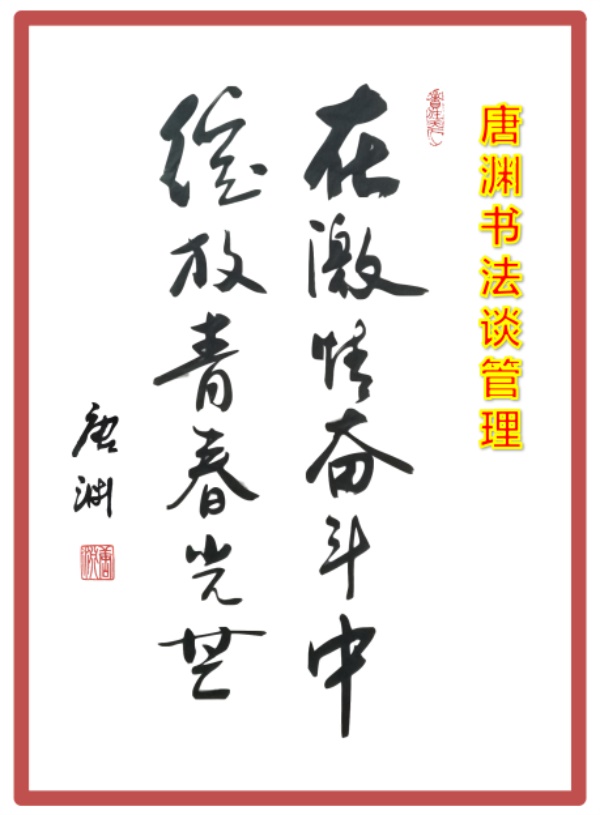 唐渊书法谈管理
在激情奋斗中
绽放青春光芒
唐渊